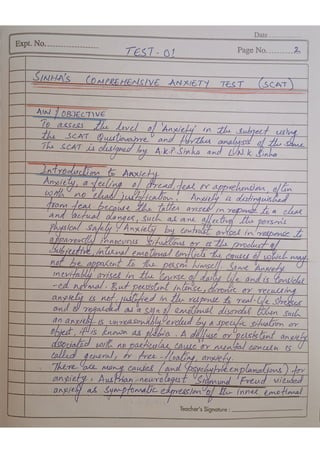 Date
Expt. No.
TEST-01
Page No. 2
SINHA'S COMPREHENSIVE ANXIETY TEST (SCAT)
AIM / OBJECTIVE
To assess the level of 'Anxiety' in the subject using
the SCAT Questionnaire and further analysis of the same
The SCAT is designed by A.K.P Sinha and L.N.K Sinha
Introduction to Anxiety
Anxiety, a feeling of dread, fear or apprehension, often
with no clear justification. Anxiety is distinguished
from fear because the latter arises in response to a clear
and actual danger, such as one affecting the person's
physical safety. Anxiety by contrast arises in response to
apparently innocuous situations or is the product of
subjective, internal emotional conflicts the causes of which may
not be apparent to the person himself. Some anxiety
inevitably arises in the course of daily life and is consider
-ed normal. But persistent, intense, chronic or recurring
anxiety is not justified in the response to real-life stresses
and is regarded as a sign of emotional disorder. When such
an anxiety is unreasonably evoked by a specific situation or
object, it is known as phobia. A diffuse or persistent anxiety
associated with no particular cause or mental concern is
called general, or free-floating anxiety.
There are many causes (and psychiatric explanations) for
anxiety. Austrian neurologist Sigmund Freud viewed
anxiety as symptomatic expression of the inner emotional
Teacher's Signature :